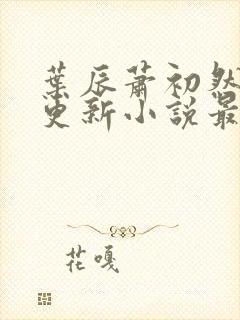 葉辰蕭初然
更新小說最
花嘎